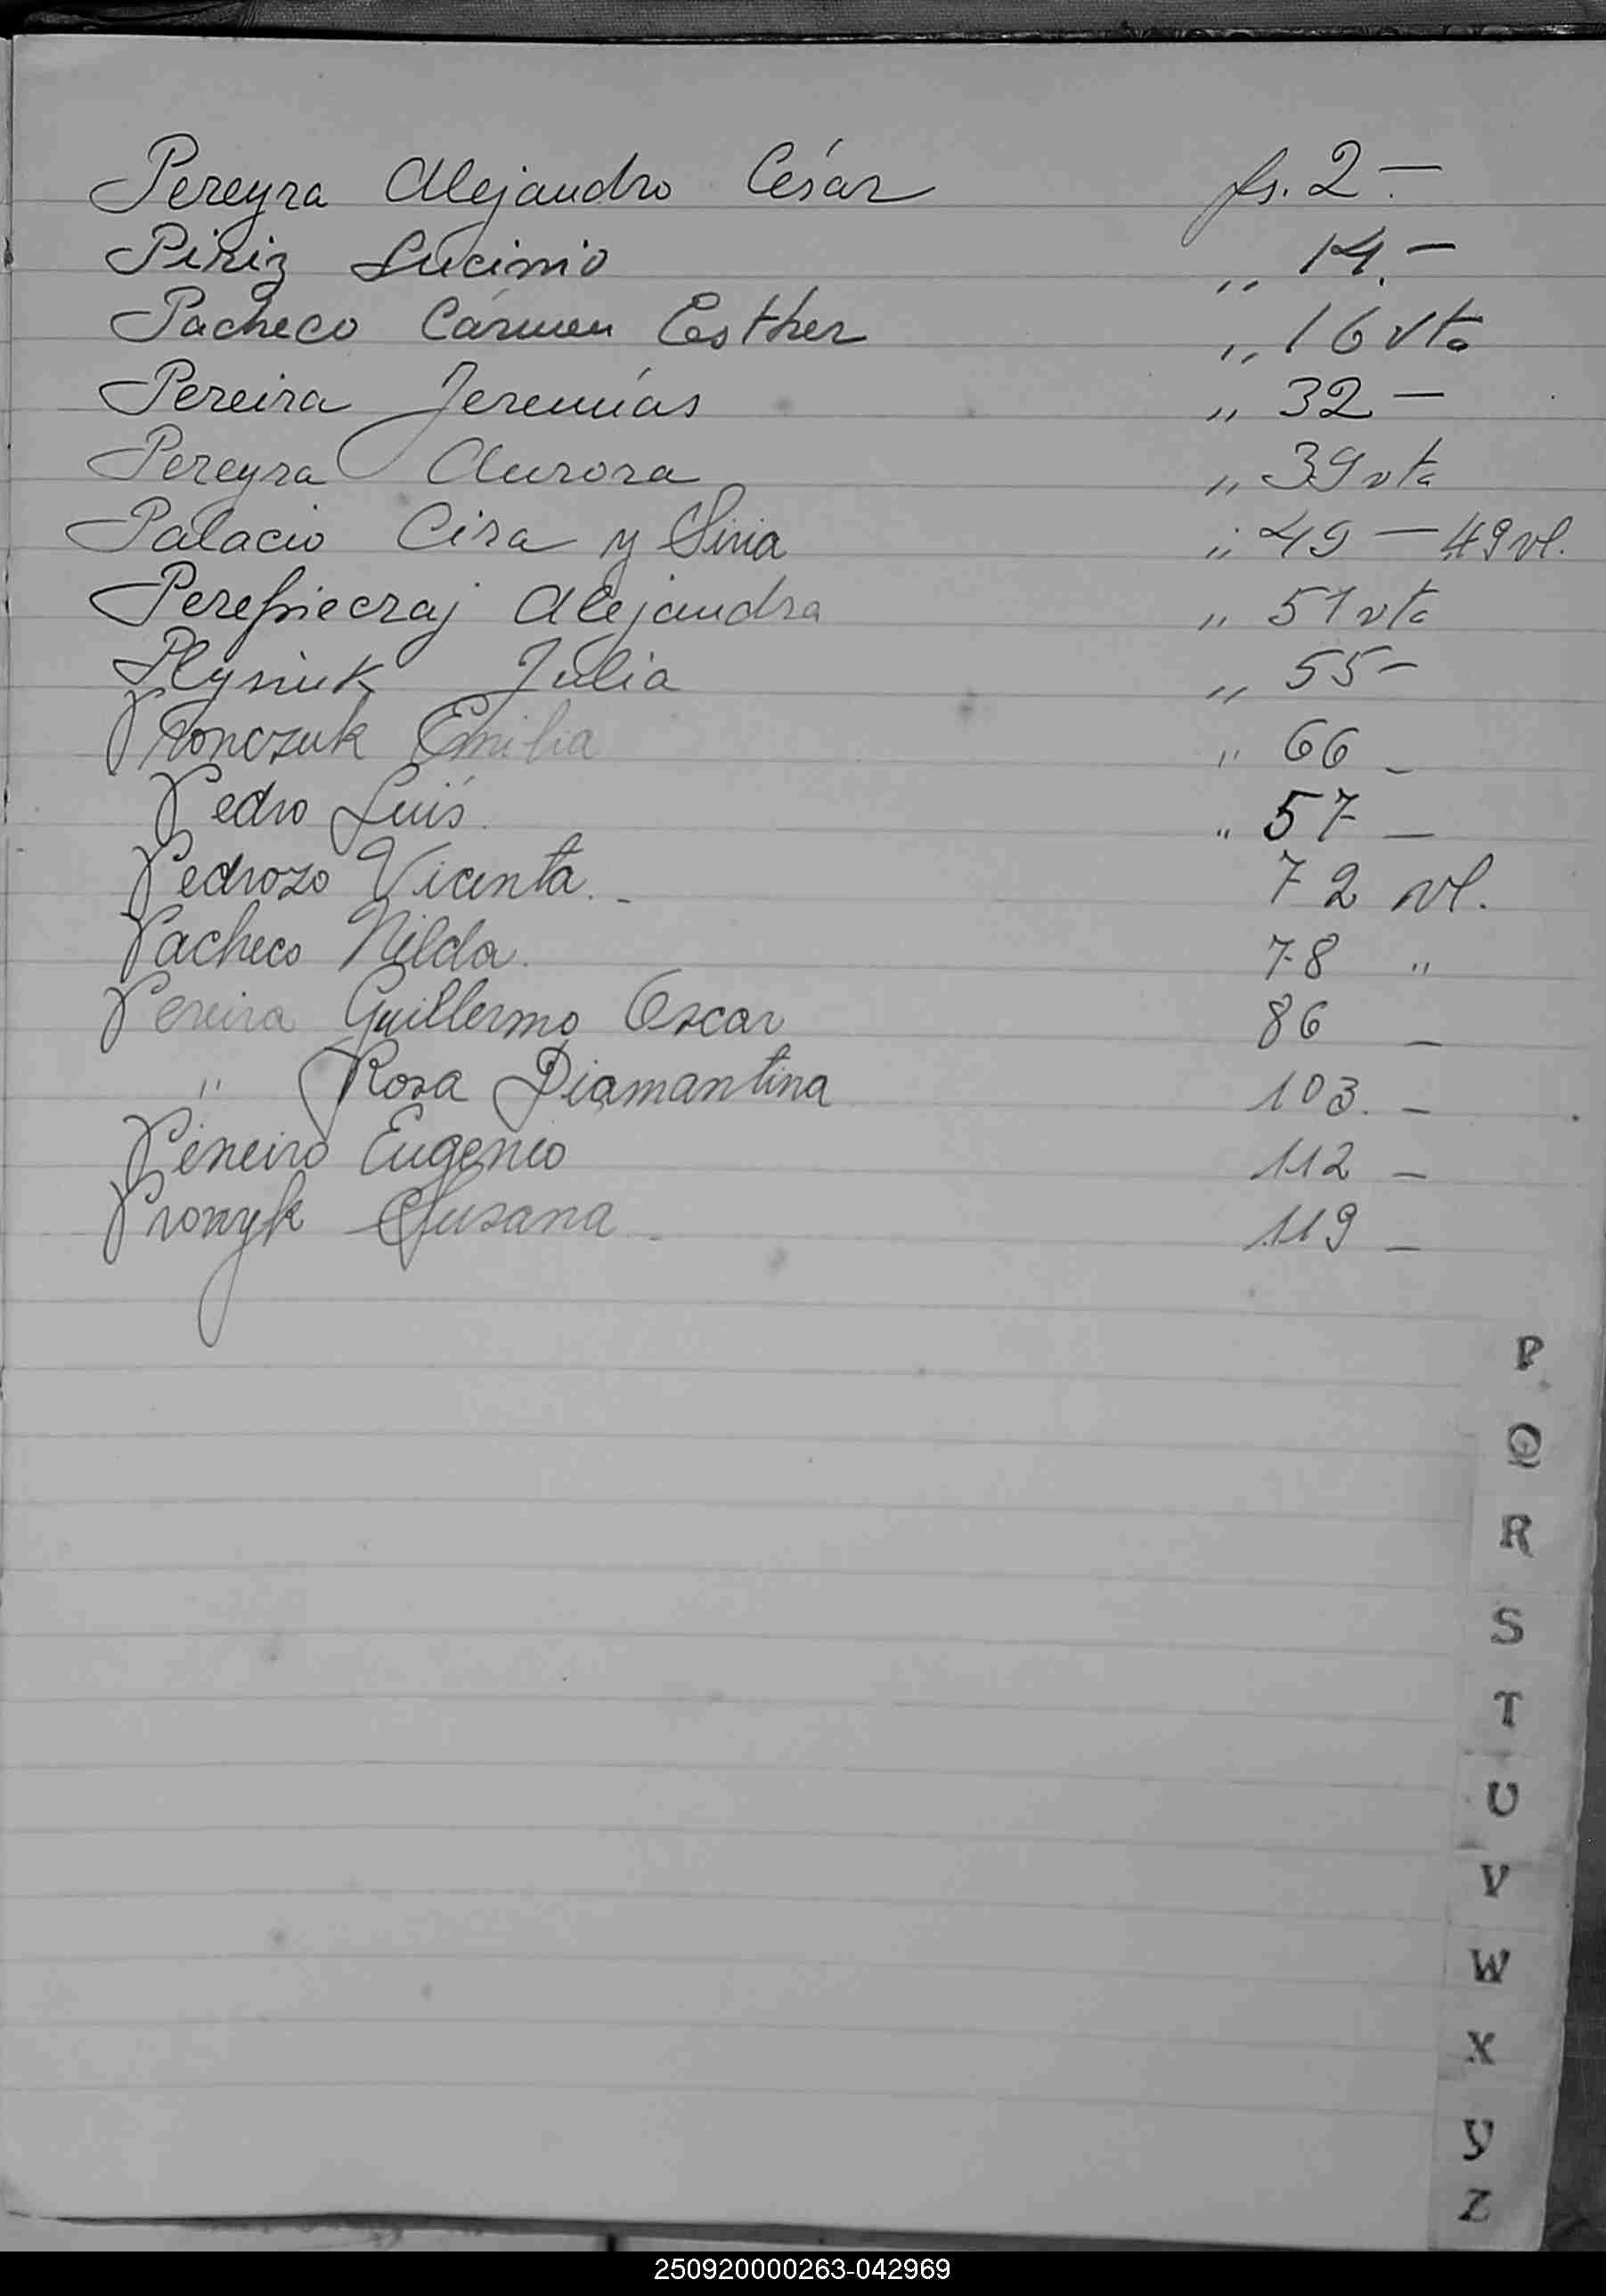 Pereyra Alejandro César fs. 2 —
Piriz Lucinio ,, 14. —
Pacheco Cármen Esther ,, 16 vta
Pereira Jeremías ,, 32 —
Pereyra Aurora ,, 39 vta
Palacio Cira y Siria ,, 49 — 49 vt.
Perepieczaj Alejandra ,, 51 vta
Plysiuk Julia ,, 55 —
Pronczuk Emilia ,, 66 —
Pedro Luis. " 57 —
Pedrozo Vicenta. - 72 vt.
Pacheco Nilda. 78 "
Pereira Guillermo Oscar 86 —
" Rosa Diamantina 103. —
Pineiro Eugenio 112 —
Susana 119 —
P
Q
R
S
T
U
V
W
X
Y
Z
250920000263-042969